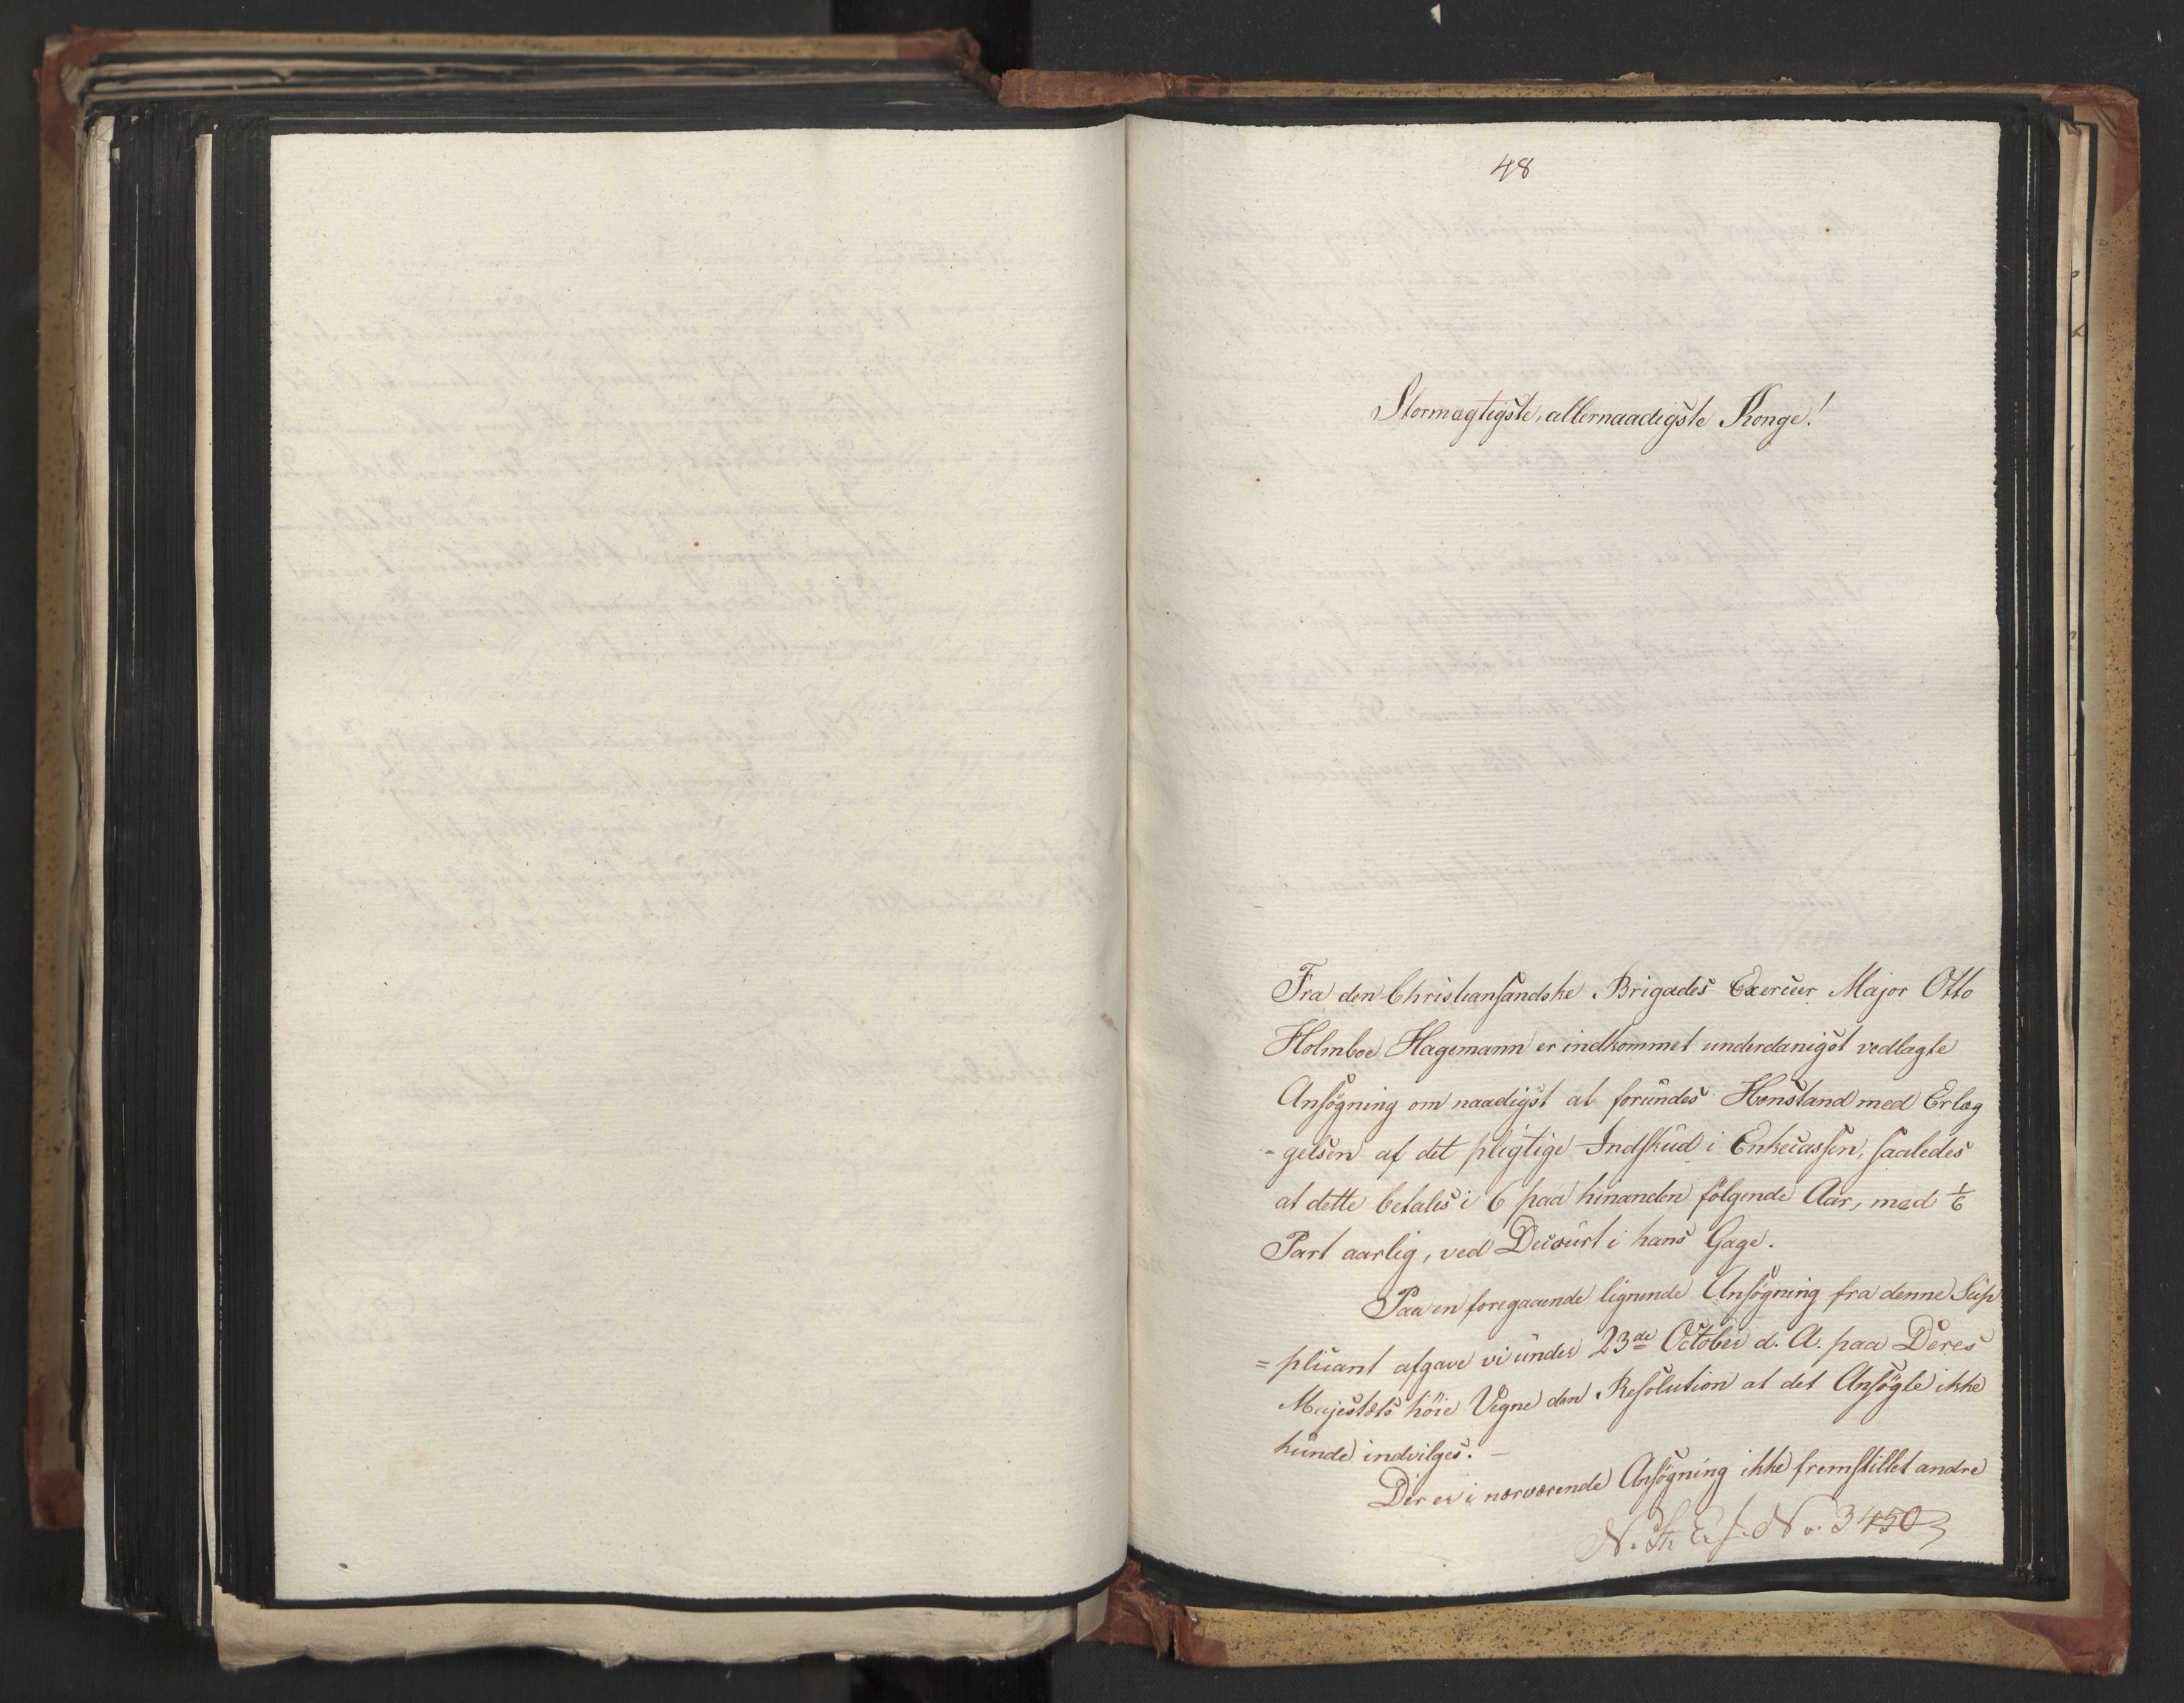 48
Stormægtigste, allernaadigste Konge!
Fra den Christiansandske Brigades Exerceer Major Otto
Holmboe Hagemann er indkommet underdanigst vedlagte
Ansøgning om naadigst at forundes Henstand med Erlæg
-gelsen af det pligtige Indskud i Enkecassen, saaledes
at dette betales i 6 paa hinanden følgende Aar, med 1/6
Part aarlig, ved Decourt i hans Gage.
Paa en foregaaende lignende Ansøgning fra denne Sup
=plicant afgave vi under 23de October d. A. paa Deres
Majestæts höie Vegne den Resolution at det Ansøgte ikke
kunde indvilges. -
Der er i nærværende Ansøgning ikke fremstillet andre
N. St. E. J. No. 3450